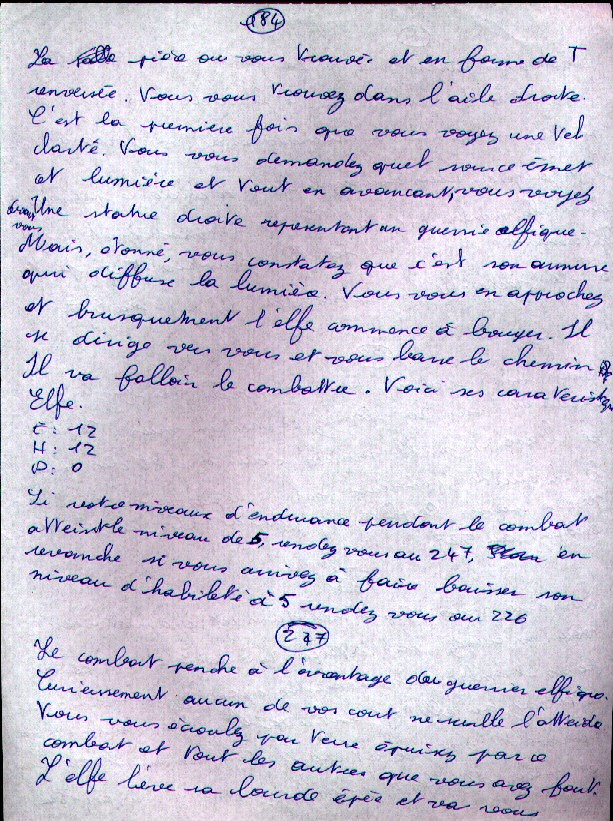 184
La pièce ou vous trouvés et en forme de T
renversée. Vous vous trouvez dans l'aile droite.
C'est la première fois que vous voyez une tel
clarté. Vous vous demandez quel source émet
et lumière et tout en avancant, vous voyez
devant vous Une statue droite representant un guerrie elfique.
Mais, étonné, vous constatez que c'est son armure
qui diffuse la lumière. Vous vous en approchez
et brusquement l'elfe commence à bouger. Il
se dirige vers vous et vous barre le chemin
Il va falloir le combattre. Voici ses carateristiques
Elfe.
E: 12
H: 12
D: 0
Si votre niveaux d'endurance pendant le combat
atteint le niveau de 5, rendez vous au 247, en
revanche si vous arrivez à faire baisser son
niveau d'habileté à 5 rendez vous au 226
247
Le combat penche à l'avantage du guerrier elfique.
Curieusement aucun de vos cout ne semble l'atteindre
Vous vous écoulez par terre épuisez par ce
combat et tout les autres que vous avez fait.
L'elfe lève sa lourde épée et va vous